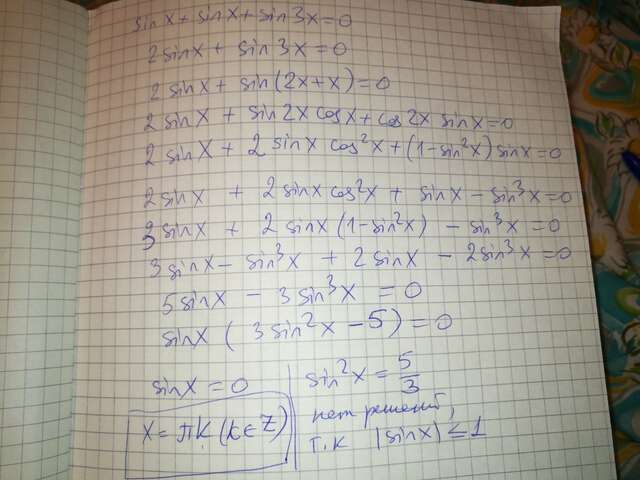 sinx + sinx + sin3x = 0
2sinx + sin3x = 0
2sinx + sin(2x+x) = 0
2sinx + sin2x cosx + cos2x sinx = 0
2sinx + 2sinx cos²x + (1-sin²x)sinx = 0
2sinx + 2sinx cos²x + sinx - sin³x = 0
3sinx + 2sinx(1-sin²x) - sin³x = 0
3sinx - sin³x + 2sinx - 2sin³x = 0
5sinx - 3sin³x = 0
sinx(3sin²x - 5) = 0
sinx = 0
x = πk (k∈Z)
sin²x = 5/3
нет решений,
т.к |sinx| ≤ 1